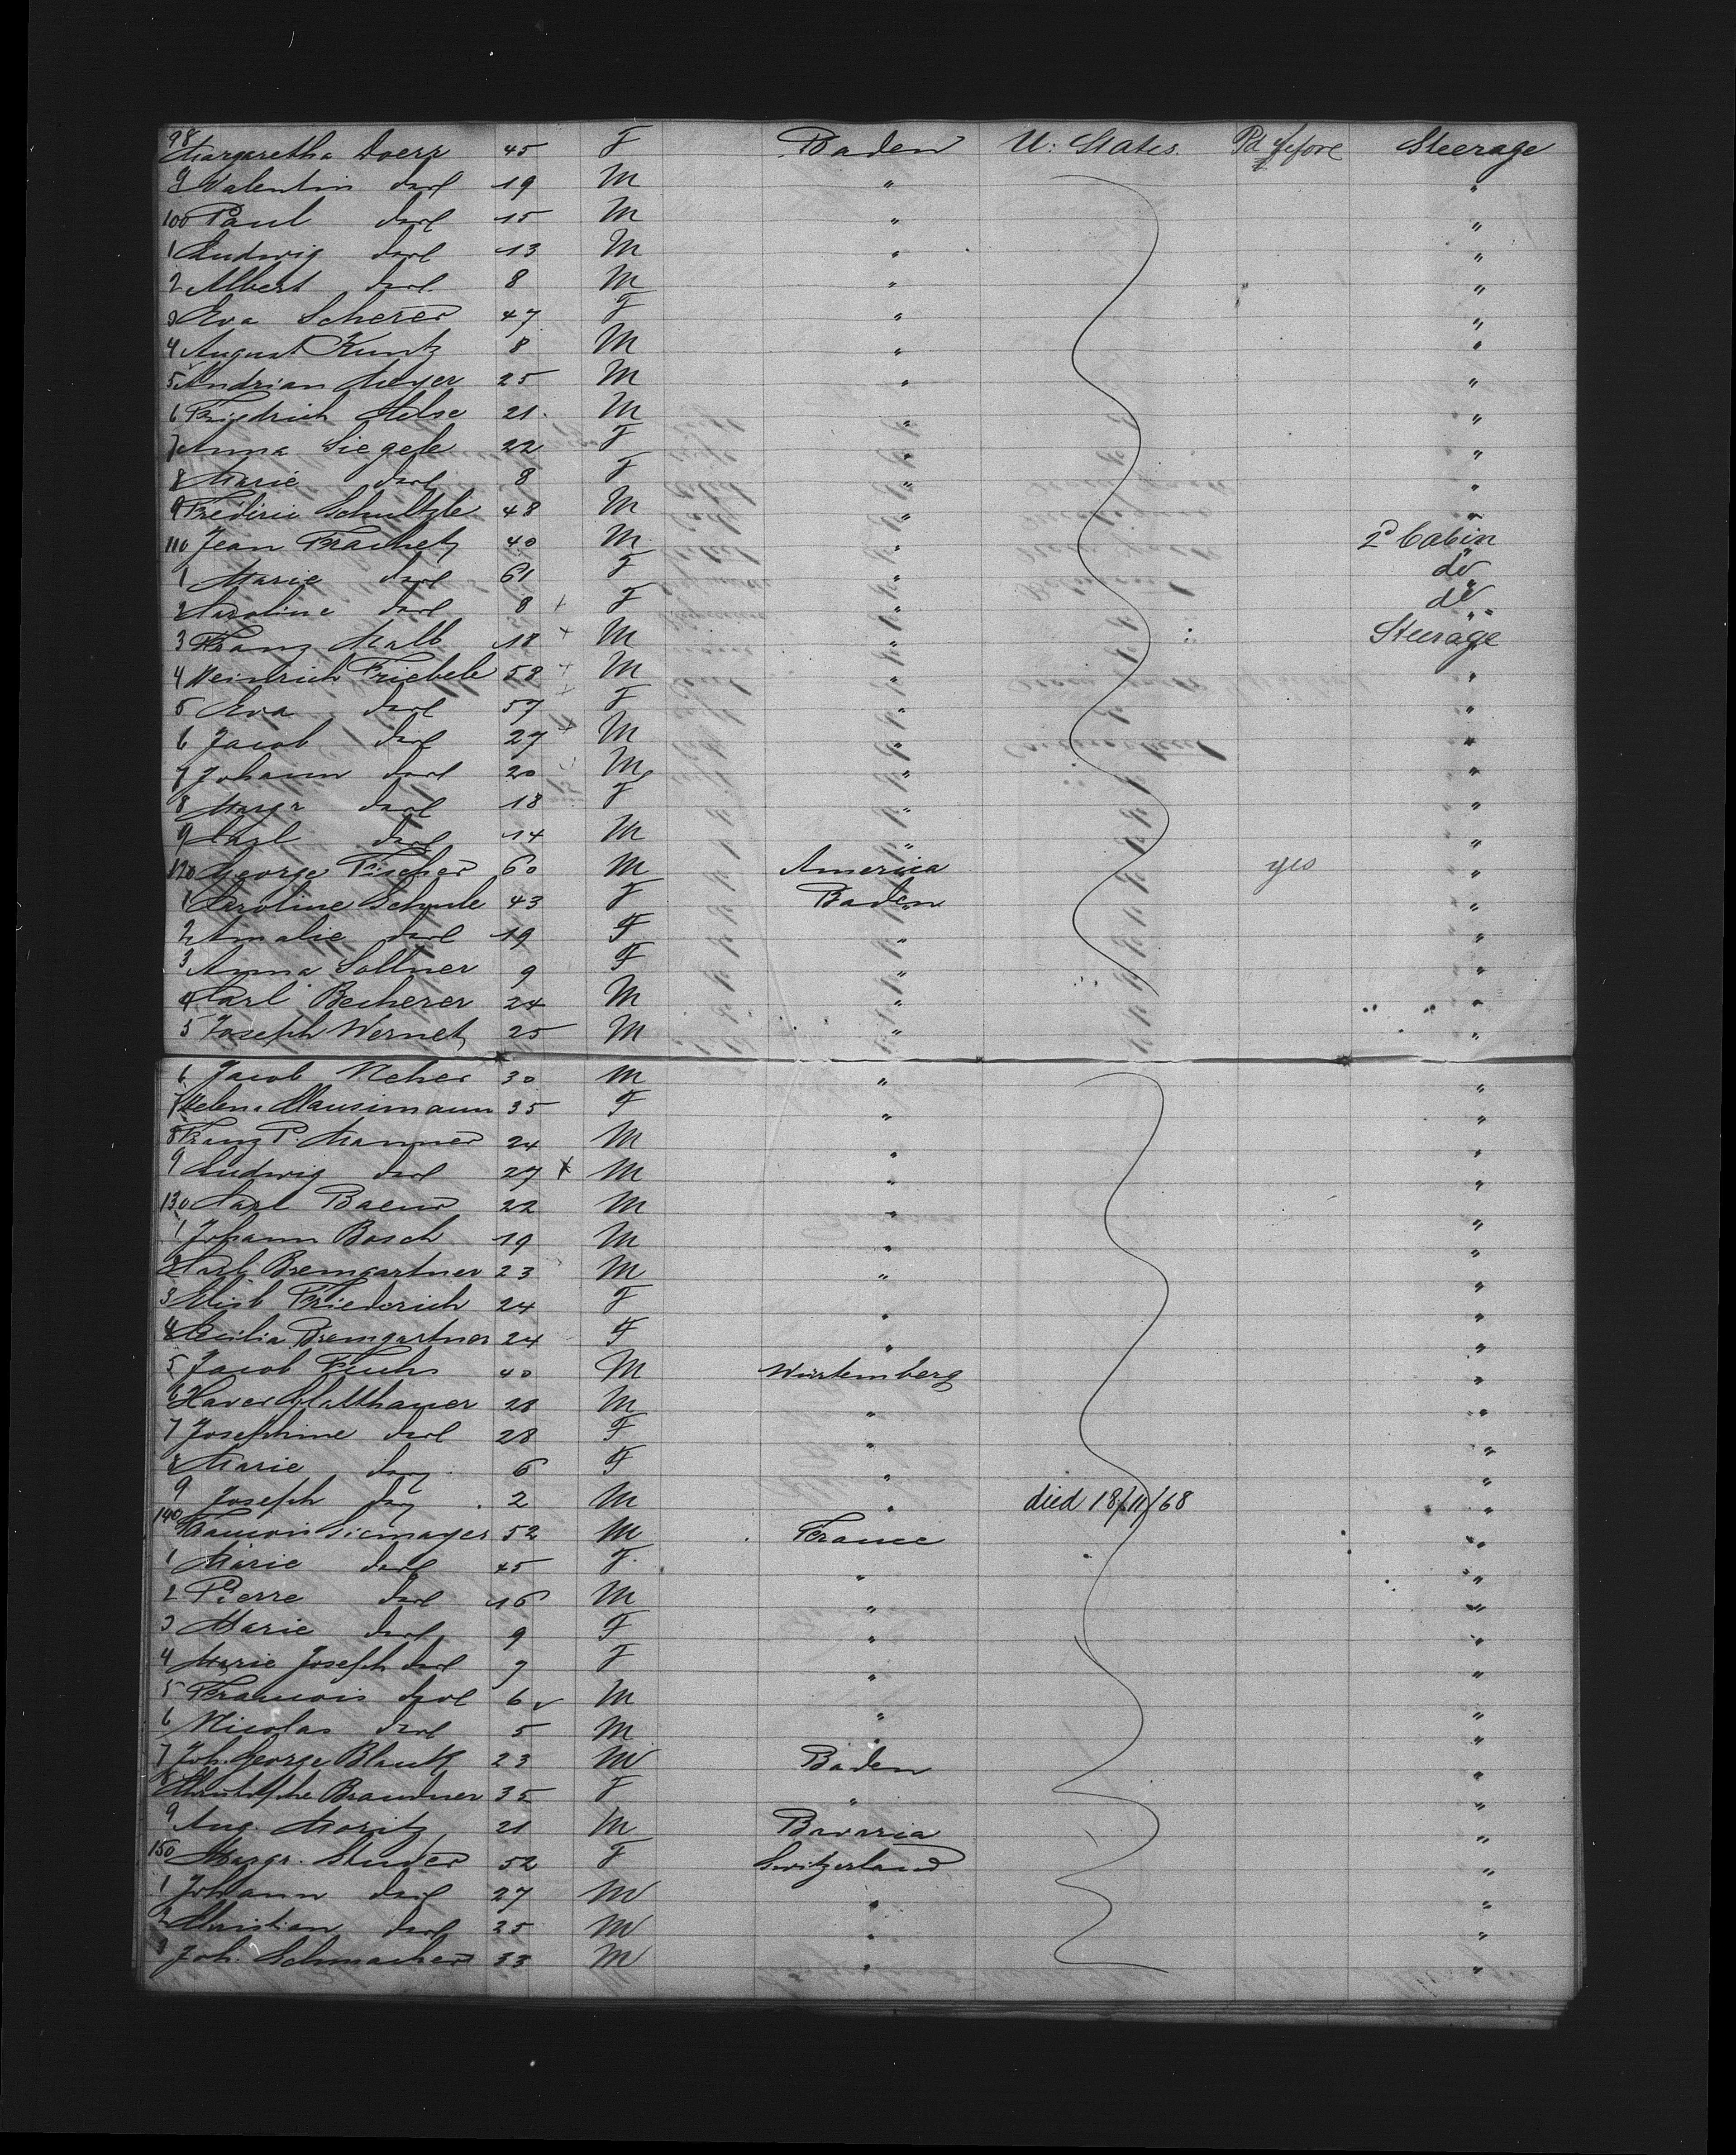 98 Margaretha Doerr 45 F Baden U: States. Steerage
9 Valentin do 19 M " "
100 Paul do 15 M " "
1 Ludwig do 13 M " "
2 Albert do 8 M " "
3 Eva Scherer 47 F " "
4 August Kuntz 8 M " "
5 Andrian Meyer 25 M " "
6 Friedrich 21 M " "
7 Anna Siegele 22 F " "
8 Marie do 8 F " "
9 Frederic Schultzle 48 M " "
110 Jean 40 M " 2d Cabin
1 Marie do 61 F " do
2 Caroline do 8 + F " do
3 Franz 18 + M " Steerage
4 Heinrich Friebele 58 + M " "
5 Eva do 57 + F " "
6 Jacob do 27 + M " "
7 Johann do 20 M " "
8 Margr do 18 F " "
9 Carl do 14 M " "
120 George Fischer 60 M America yes "
1 Caroline 43 F Baden "
2 Amalie do 19 F " "
3 Anna Sollner 9 F " "
4 Carl Becherer 24 M " "
5 Joseph Wernet 25 M " "
6 Jacob Neher 30 M " "
7 35 F " "
8 Franz P. 24 M " "
9 Ludwig do 27 + M " "
130 Carl 22 M " "
1 Johann Bosch 19 M " "
2 Carl Bremgartner 23 M " "
3 Friederich 24 F " "
4 Cecilia Bremgartner 24 F " "
5 Jacob Fuchs 40 M Würtemberg "
6 Xaver Glatthauer 28 M " "
7 Josephine do 28 F " "
8 Marie do 6 F " "
9 Joseph do 2 M " died 18/11/68 "
140 Francois 52 M France "
1 Marie do 45 F " "
2 Pierre do 16 M " "
3 Marie do 9 F " "
4 Marie Joseph do 7 F " "
5 Francois do 6 M " "
6 Nicolas do 5 M " "
7 Joh. George Blank 23 M Baden "
8 Brandner 35 F " "
9 Aug. Moritz 21 M Bavaria "
150 Margr. Studer 52 F Switzerland "
1 Johann do 27 M " "
2 Christian do 25 M " "
3 Joh. Schumacher 33 M " "